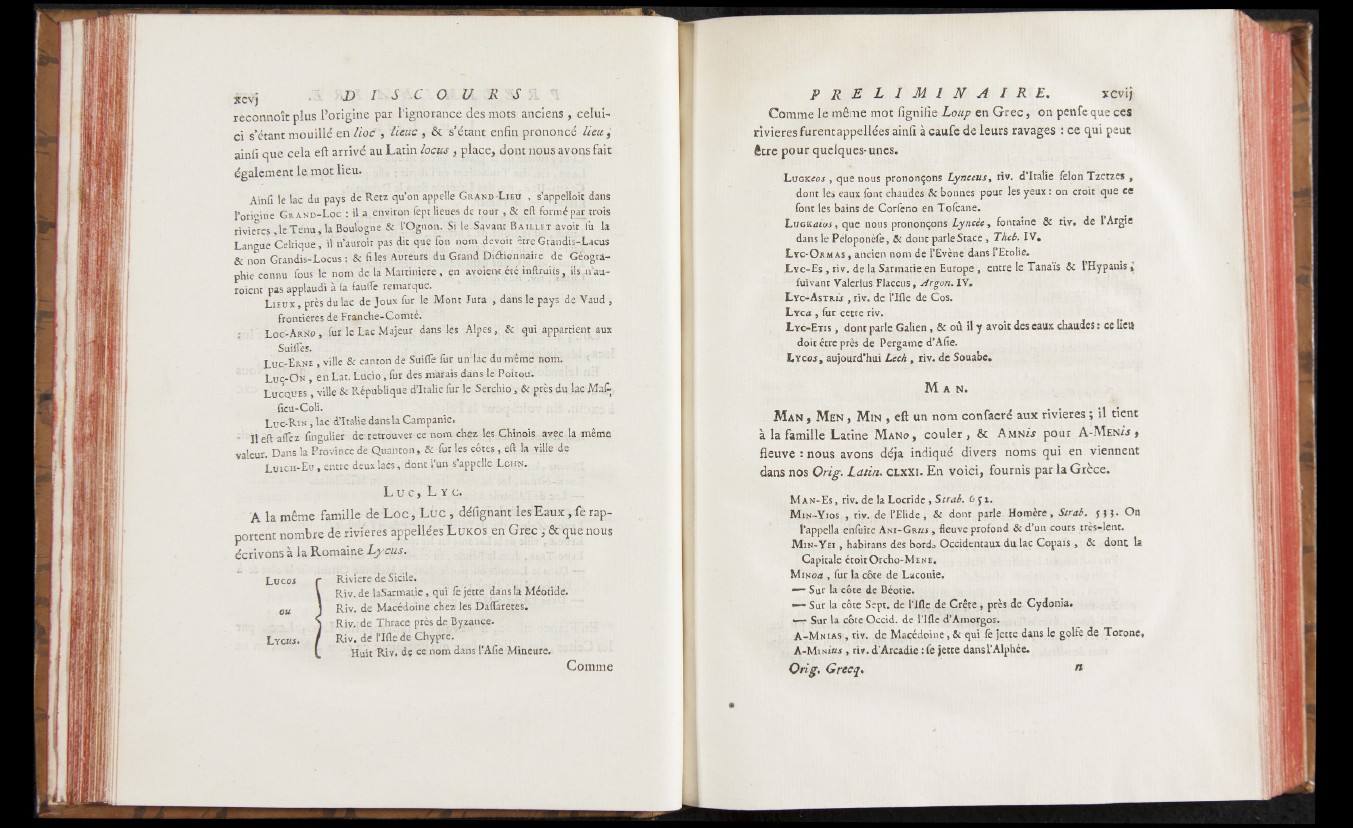 xcvj DISCOURS
reconnoît plus l'origine par l'ignorance des mots anciens, celui-
ci s'étant mouillé en lioc, lieuc, & s'étant enfin prononcé lieu,
ainſi que cela eſt arrivé au Latin locus, place, dont nous avons fait
également le mot lieu.
Ainſi le lac du pays de Retz qu'on appelle GRAND-LIEU, s'appelloit dans
l'origine GRAND-LOC : il a environ ſept lieues de tour, & eſt formé par trois
rivieres, le Tenu, la Boulogne & l'Ognon. Si le Savant BAILLET avoit ſû la
Langue Celtique, il n'auroit pas dit que ſon nom devoit être Grandis-Lacus
& non Grandis-Locus : & ſi les Auteurs du Grand Dictionnaire de Géogra-
phie connu ſous le nom de la Martiniere, en avoient été inſtruits, ils n'au-
roient pas applaudi à ſa fauſſe remarque.
LIEUX, près du lac de Joux ſur le Mont Jura, dans le pays de Vaud,
frontieres de Franche-Comté.
LOC-ARNO, ſur le Lac Majeur dans les Alpes, & qui appartient aux
Suiſſes.
LUC-ERNE, ville & canton de Suiſſe ſur un lac du même nom.
LUÇ-ON, en Lat. Lucio, ſur des marais dans le Poitou.
LUCQUES, ville & République d'Italie ſur le Serchio, & près du lac Maſ-
ſicu-Coli.
LUC-RIN, lac d'Italie dans la Campanie.
Il eſt aſſez ſingulier de retrouver ce nom chez les Chinois avec la même
valeur. Dans la Province de Quanton, & ſur les côtes, eſt la ville de
LUICH-EU, entre deux lacs, dont l'un s'appelle LOHN.
LUC, LYC.
A la même famille de LOC, LUC, déſignant les Eaux, ſe rap-
portent nombre de rivieres appellées LUKOS en Grec, & que nous
écrivons à la Romaine Lycus.
LUCOS
ou
LYCUS.
Riviere de Sicile.
Riv. de la Sarmatie, qui ſe jette dans la Méotide.
Riv. de Macédoine chez les Daſſaretes.
Riv. de Thrace près de Byzance.
Riv. de l'Iſle de Chypre.
Huit Riv. de ce nom dans l'Aſie Mineure.
Comme
PRELIMINAIRE. xcvij
Comme le même mot ſignifie Loup en Grec, on penſe que ces
rivieres furent appellées ainſi à cauſe de leurs ravages : ce qui peut
être pour quelques-unes.
LUGKEOS, que nous prononçons Lynceus, riv. d'Italie ſelon Tzetzes,
dont les eaux ſont chaudes & bonnes pour les yeux : on croit que ce
ſont les bains de Corſeno en Toſcane.
LUGKAIOS, que nous prononçons Lyncée, fontaine & riv. de l'Argie
dans le Peloponèſe, & dont parle Stace, Theb. IV.
LYC-ORMAS, ancien nom de l'Evène dans l'Etolie.
LYC-ES, riv. de la Sarmatie en Europe, entre le Tanaïs & l'Hypanis,
ſuivant Valerius Flaccus, Argon. IV.
LYC-ASTRIS, riv. de l'Iſle de Cos.
LYCA, ſur cette riv.
LYC-ETIS, dont parle Galien, & où il y avoit des eaux chaudes : ce lieu
doit être près de Pergame d'Aſie.
LYCOS, aujourd'hui Lech, riv. de Souabe.
MAN.
MAN, MEN, MIN, eſt un nom conſacré aux rivieres ; il tient
à la famille Latine MANO, couler, & AMNIS pour A-MENIS,
fleuve : nous avons déja indiqué divers noms qui en viennent
dans nos Orig. Latin. CLXXI. En voici, fournis par la Grèce.
MAN-ES, riv. de la Locride, Strab. 651.
MIN-YIOS, riv. de l'Elide, & dont parle Homère, Strab. 533. On
l'appella enſuite ANI-GRUS, fleuve profond & d'un cours très-lent.
MIN-YEI, habitans des bords Occidentaux du lac Copaïs, & dont la
Capitale étoit Orcho-MENE.
MINOA, ſur la côte de Laconie.
— Sur la côte de Béotie.
— Sur la côte Sept. de l'Iſle de Crête, près de Cydonia.
— Sur la côte Occid. de l'Iſle d'Amorgos.
A-MNIAS, riv. de Macédoine, & qui ſe jette dans le golfe de Torone.
A-MINIUS, riv. d'Arcadie : ſe jette dans l'Alphée.
Orig. Grecq. n